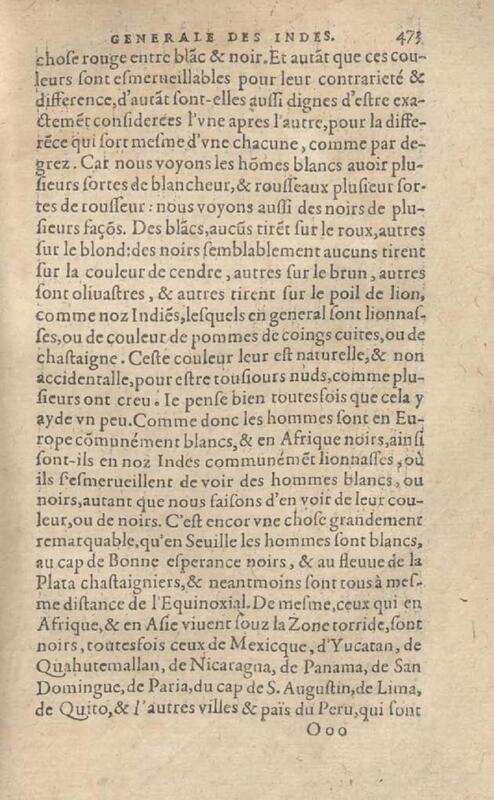 GENERALE DES INDES. 473
choſe rouge entre blãc & noir. Et autãt que ces cou-
leurs ſont eſmerueillables pour leur contrarieté &
difference, d'autãt ſont-elles auſſi dignes d'eſtre exa-
ctemẽt conſiderees l'vne apres l'autre, pour la diffe-
rẽce qui ſort meſme d'vne chacune, comme par de-
grez. Car nous voyons les hõmes blancs auoir plu-
ſieurs ſortes de blancheur, & rouſſeaux pluſieur ſor-
tes de rouſſeur: nous voyons auſſi des noirs de plu-
ſieurs façõs. Des blãcs, aucũs tirẽt ſur le roux, autres
ſur le blond: des noirs ſemblablement aucuns tirent
ſur la couleur de cendre, autres ſur le brun, autres
ſont oliuaſtres, & autres tirent ſur le poil de lion,
comme noz Indiẽs, leſquels en general ſont lionnaſ-
ſes, ou de couleur de pommes de coings cuites, ou de
chaſtaigne. Ceſte couleur leur eſt naturelle, & non
accidentalle, pour eſtre touſiours nuds, comme plu-
ſieurs ont creu. Ie penſe bien toutesfois que cela y
ayde vn peu. Comme donc les hommes ſont en Eu-
rope cõmunément blancs, & en Afrique noirs, ainſi
ſont-ils en noz Indes communémẽt lionnaſſes, où
ils ſ'eſmerueillent de voir des hommes blancs, ou
noirs, autant que nous faiſons d'en voir de leur cou-
leur, ou de noirs. C'eſt encor vne choſe grandement
remarquable, qu'en Seuille les hommes ſont blancs,
au cap de Bonne eſperance noirs, & au fleuue de la
Plata chaſtaigniers, & neantmoins ſont tous à meſ-
me diſtance de l'Equinoxial. De meſme, ceux qui en
Afrique, & en Aſie viuent ſouz la Zone torride, ſont
noirs, toutesfois ceux de Mexicque, d'Yucatan, de
Quahutemallan, de Nicaragua, de Panama, de San
Domingue, de Paria, du cap de S. Auguſtin, de Lima,
de Quito, & l'autres villes & païs du Peru, qui ſont
Ooo